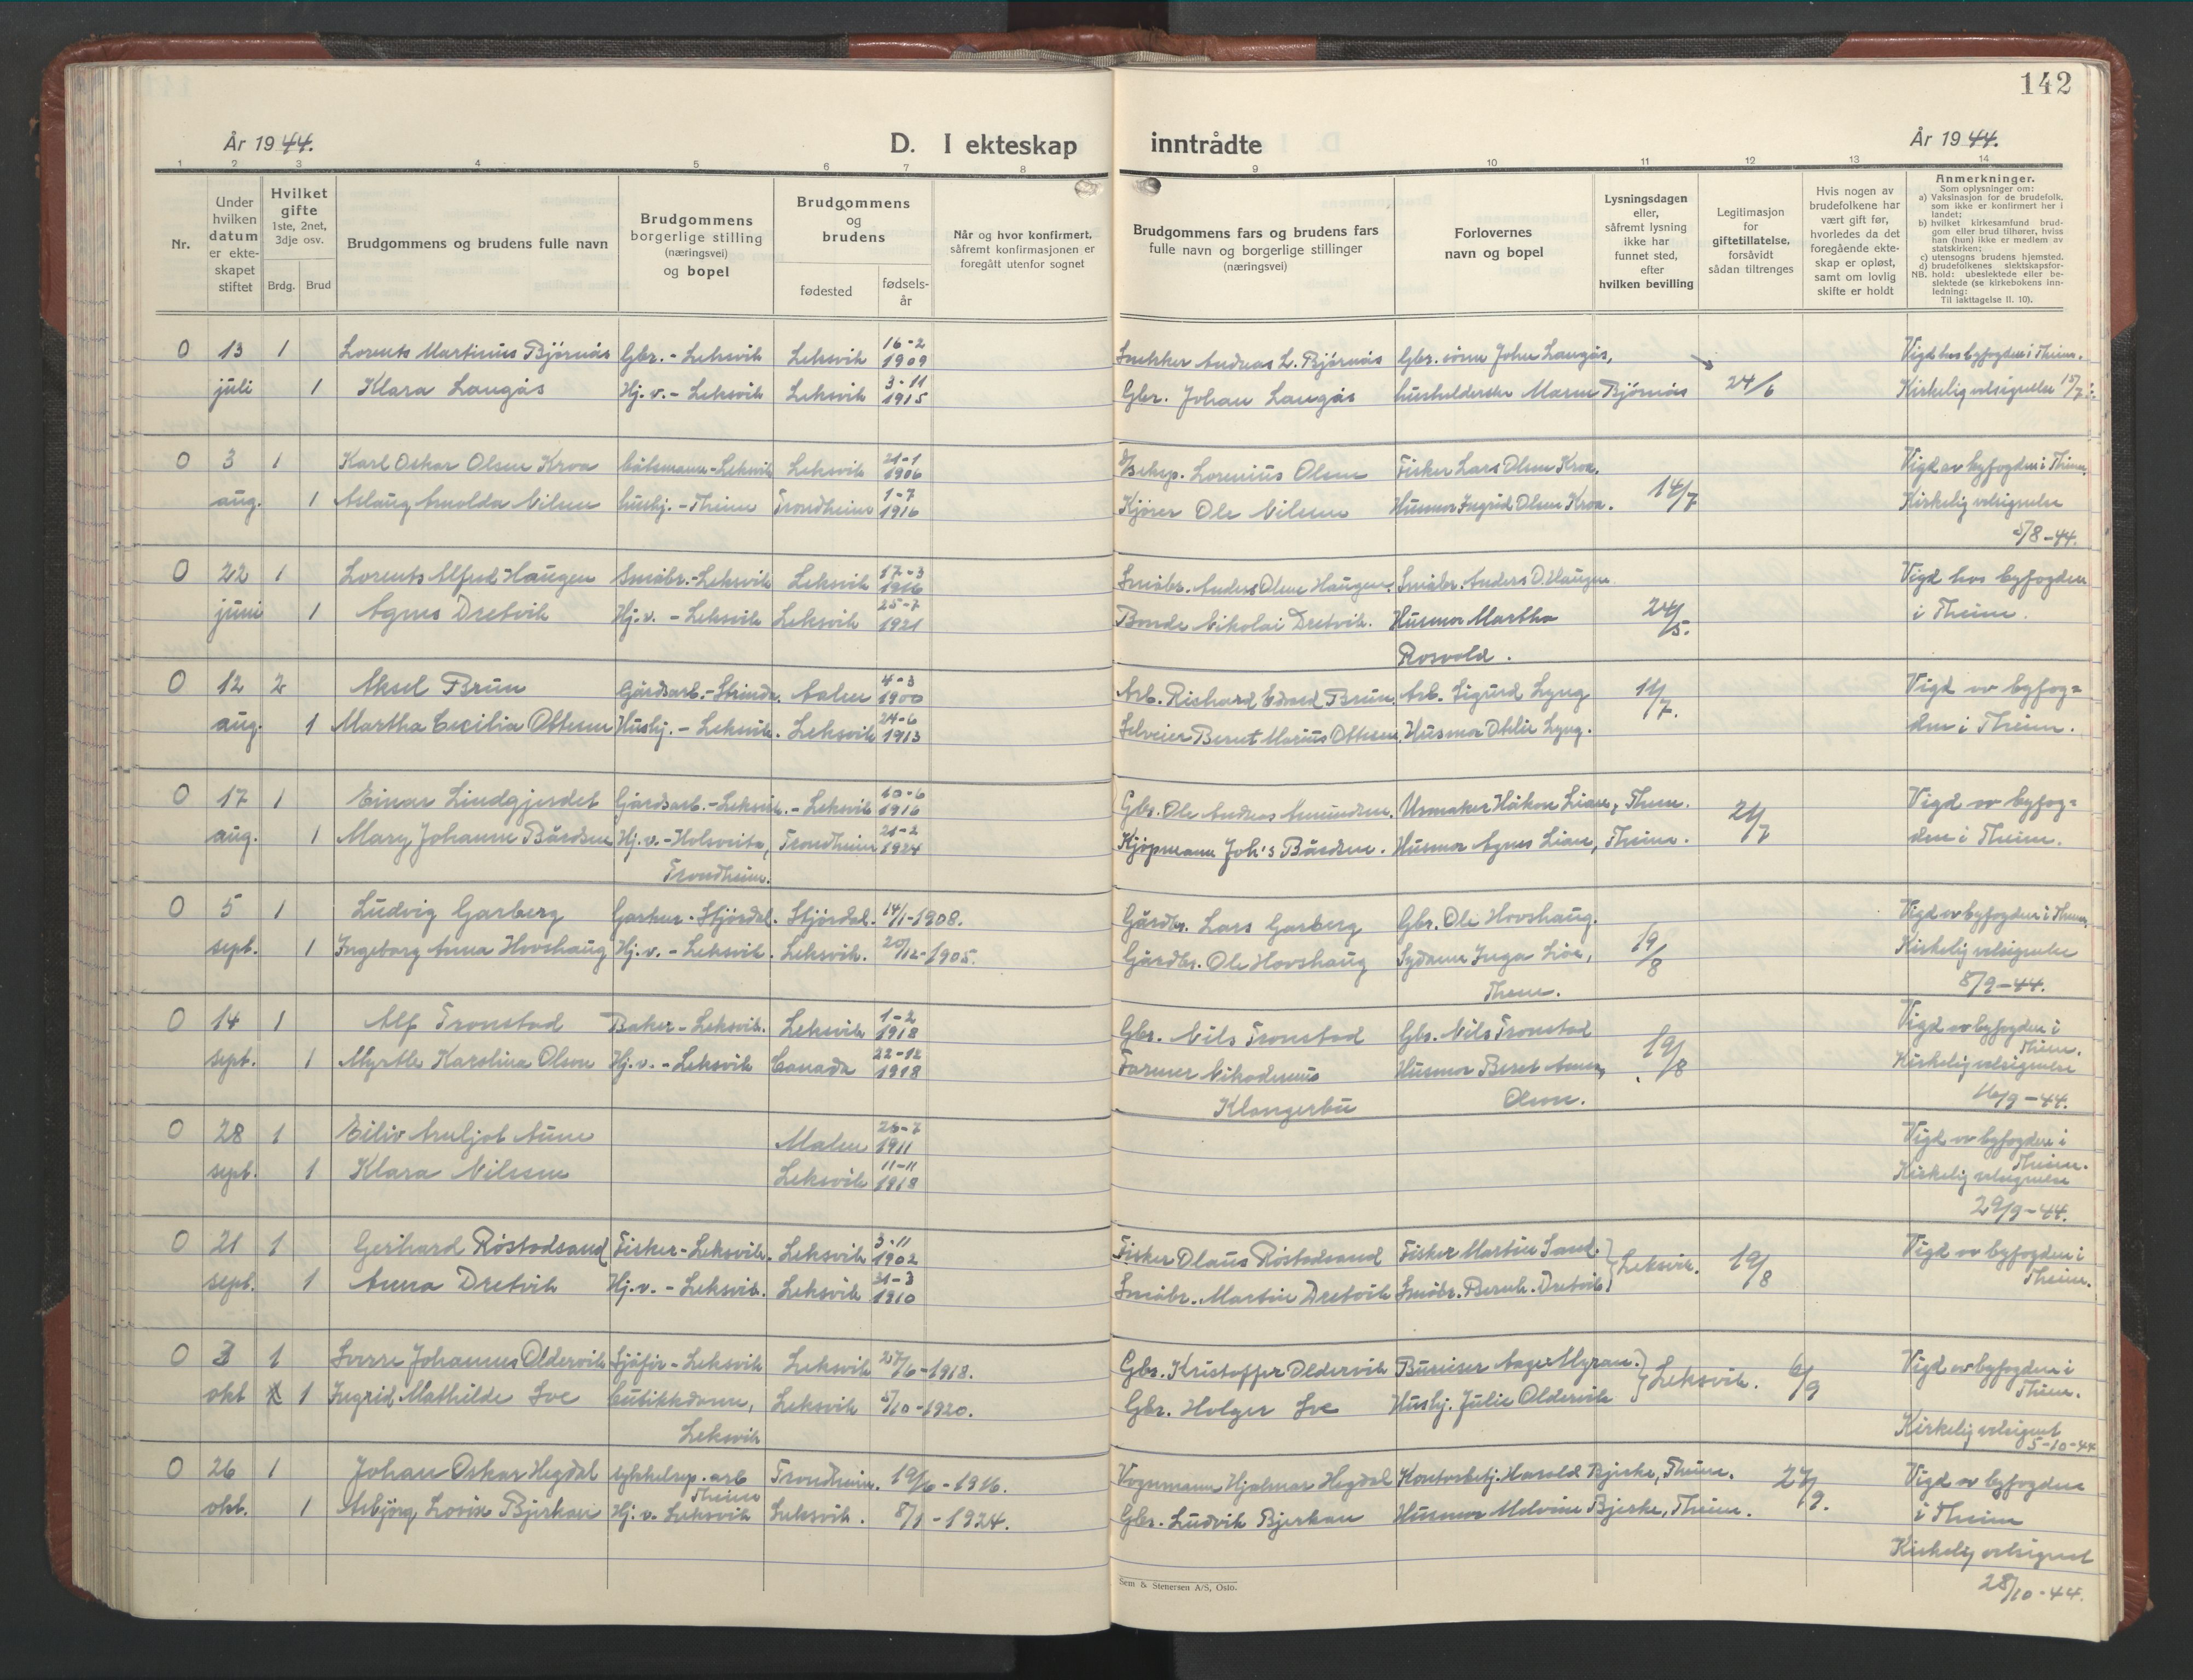 142
År 1944.
D. I ekteskap inntrådte
År 1944.
1 2 3 4 5 6 7 8 9 10 11 12 13 14
Nr.
Under hvilken datum er ekteskapet stiftet
Hvilket gifte 1ste, 2net, 3dje osv.
Brdg. Brud
Brudgommens og brudens fulle navn
Brudgommens borgerlige stilling (næringsvei) og bopel
Brudgommens og brudens
fødested
fødsels-år
Når og hvor konfirmert, såfremt konfirmasjonen er foregått utenfor sognet
Brudgommens fars og brudens fars fulle navn og borgerlige stillinger (næringsvei)
Forlovernes navn og bopel
Lysningsdagen eller, såfremt lysning ikke har funnet sted, efter hvilken bevilling
Legitimasjon for giftetillatelse, forsåvidt sådan tiltrenges
Hvis nogen av brudefolkene har vært gift før, hvorledes da det foregående ekteskap er opløst, samt om lovlig skifte er holdt
Anmerkninger.
Som oplysninger om:
a) Vaksinasjon for de brudefolk, som ikke er konfirmert her i landet;
b) hvilket kirkesamfund brudgom eller brud tilhører, hviss han (hun) ikke er medlem av statskirken;
c) utensogns brudens hjemsted.
d) brudefolkenes slektskapsforhold: ubeslektede eller beslektede (se kirkebokens innledning:
NB.
Til iakttagelse II. 10).
0 13 1 Lorents Martinus Bjørnås Gbr. - Leksvik Leksvik 16-2 1909 Snekker Andreas L. Bjørnås Gbr. sønn Johan Langås, Vigd hos byfogden i Theim.
juli 1 Klara Langås Hj.v. - Leksvik Leksvik 3-11 1915 Gbr. Johan Langås husholderske Bjørnås 24/6 Kirkelig velsignelse 15/7
0 3 1 Karl Oskar Olsen Kroa Leksvik Leksvik 21-1 1906 Lorenius Olsen Fisker Lars Olsen Kroa. Vigd av byfogden i Theim.
aug. 1 Aslaug Arnolda Nilsen hushj. - Theim Trondheim 1-7 1916 Kjører Ole Nilsen Husmor Ingrid Olsen Kroa. 14/7 Kirkelig velsignelse
5/8-44.
0 22 1 Lorents Alfred Haugen Småbr. - Leksvik Leksvik 17-3 Småbr. Anders Olsen Haugen. Småbr. Anders O. Haugen. Vigd hos byfogden
juni 1 Agnes Dretvik Hj.v. - Leksvik Leksvik 25-7 1921 Bonde Nikolai Dretvik. Husmor Martha 24/5. i Theim.
Rosvold.
0 12 2 Aksel Brun Gårdsarb. - Strinda. Aalen 4-3 1900 Arb. Richard Edvard Brun. Arb. Sigurd Lyng Vigd av byfog=
aug. 1 Martha Cecilia Ottesen Hushj. - Leksvik. Leksvik 24-6 1913 Selveier Bernt Marius Ottesen. Husmor Lyng. /7. den i Theim.
0 17 1 Einar Lindgjerdet Gårdsarb. - Leksvik. - Leksvik 10-6 1916 Gbr. Ole Andreas Amundsen. Urmaker Håkon Lian, Theim. Vigd av byfog=
aug. 1 Mary Johanne Bårdsen Hj.v. - Trondheim 21-2 1924 Kjøpmann Joh's Bårdsen. Husmor Agnes Lian, Theim. 21/7 den i Theim.
Trondheim.
0 5 1 Ludvig Garberg Stjørdal. Stjørdal. 14/1-1908. Gårdbr. Lars Garberg Gbr. Ole Hovshaug. Vigd av byfogden i Theim.
sept. 1 Ingeborg Anna Hovshaug Hj.v. - Leksvik. Leksvik. 20/12-1905. Gårdbr. Ole Hovshaug Sydame Inga 19/8 Kirkelig velsignelse
Theim. 8/9-44.
0 14 1 Alf Tronstad Baker - Leksvik. Leksvik 1-2 1918 Gbr. Nils Tronstad Gbr. Nils Tronstad Vigd av byfogden i Theim.
sept. 1 Myrtle Karolina Olson Hj.v. - Leksvik Canada 22-12 1918 Farmer Nikodemus Husmor Beret Anna 19/8 Kirkelig velsignelse
Klongerbu Olson. 16/9-44.
0 28 1 Eiliv Arnljot Aune Malm 26-7 1911 Vigd av byfogden i Theim.
sept. 1 Klara Nilssen Leksvik 11-11 1918 Kirkelig velsignelse
29/9-44.
0 21 1 Gerhard Røstadsand Fisker - Leksvik. Leksvik 3-11 1902 Fisker Olaus Røstadsand Fisker Martin Sand. Leksvik. 19/8 Vigd av byfogden i
sept. 1 Anna Dretvik Hj.v. - Leksvik. Leksvik 31-3 1910 Småbr. Martin Dretvik Småbr. Bernh. Dretvik Theim.
0 3 1 Sverre Johannes Oldervik Sjåfør - Leksvik Leksvik 27/6-1918. Gbr. Kristoffer Oldervik Bureiser Aage Myran. Leksvik. 6/9 Vigd av byfogden i Theim.
okt 1 Ingrid Mathilde Sve butikkdame, Leksvik 5/10-1920. Gbr. Holger Sve Hushj. Julie Oldervik
Leksvik Kirkelig velsignet 5-10-44
0 26 1 Johan Oskar Hegdal sykkelrep. arb Theim Trondheim. 19/6-1916. Vognmann Hjalmar Hegdal Kontorbetj. Harald Bjerke, Theim. 27/9. Vigd av byfogden
okt. 1 Asbjørg Lovise Bjerkan Hj.v. Leksvik Leksvik. 8/1-1924. Gbr. Ludvik Bjerkan Husmor Malvine Bjerke, Theim. i Theim
Kirkelig velsignet
28/10-44.
Sem & Stenersen A/S, Oslo.